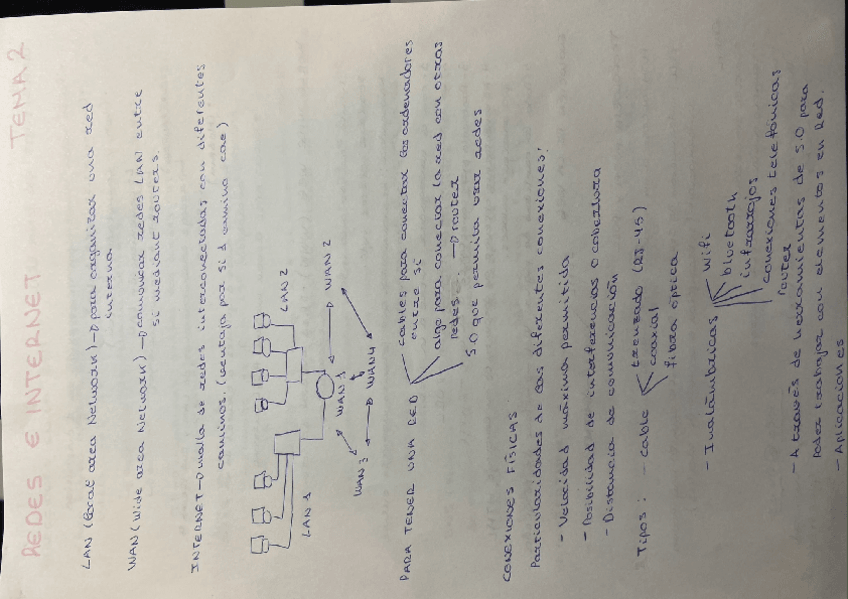 REDES E INTERNET TEMA 2
LAN (Local area Network) → para organizar una red
interna.
WAN (Wide area Network) → comunicar redes LAN entre
si mediant routers.
INTERNET → malla de redes interconectadas con diferentes
caminos. (ventaja por si 1 camino cae)
LAN 1
LAN 2
WAN 1
WAN 2
WAN 3
WAN 4
PARA TENER UNA RED
cables para conectar los ordenadores
entre si
algo para conectar la red con otras
redes. → router
S.O que permita usar redes
CONEXIONES FÍSICAS
Particularidades de las diferentes conexiones:
- Velocidad máxima permitida
- Posibilidad de interferencias o cobertura
- Distancia de comunicación
Tipos: - cable
trenzado (RJ-45)
coaxial
fibra óptica
- Inalámbricas
wifi
bluetooth
infrarrojos
conexiones telefónicas
router
- A través de herramientas de S.O para
poder trabajar con elementos en Red.
- Aplicaciones